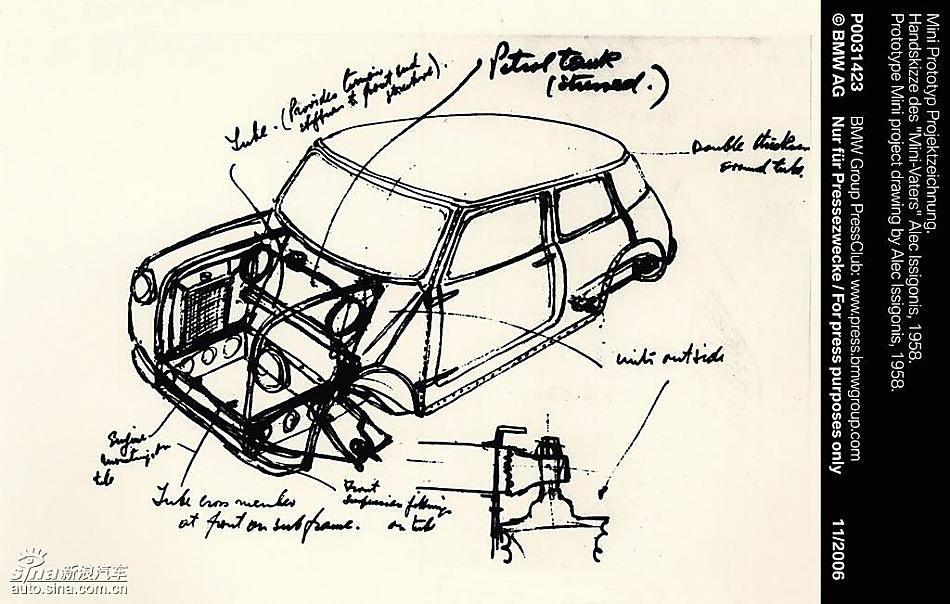 Petrol tank
(stressed.)
Tube. (Provides
stiffener to front end
structure).
Double thickness
around tube.
units outside
Engine
mounting on
tube
Tube cross member
at front on subframe.
Front
suspension fittings
on tube
Mini Prototyp Projektzeichnung.
Handskizze des "Mini-Vaters" Alec Issigonis, 1958.
Prototype Mini project drawing by Alec Issigonis, 1958.
P0031423 BMW Group PressClub: www.press.bmwgroup.com
© BMW AG Nur für Pressezwecke / For press purposes only 11/2006
sina新浪汽车
auto.sina.com.cn